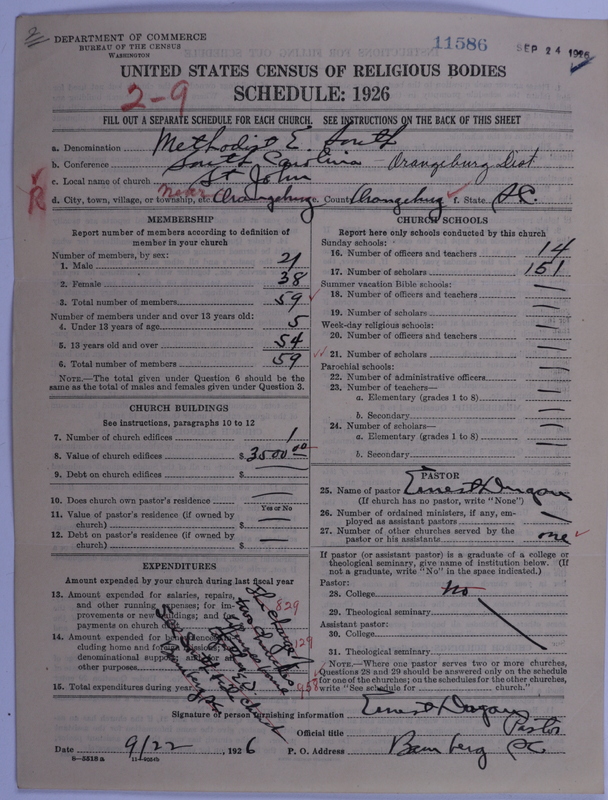 2
DEPARTMENT OF COMMERCE
BUREAU OF THE CENSUS
WASHINGTON
11586
SEP 24 1926
UNITED STATES CENSUS OF RELIGIOUS BODIES
2-9
SCHEDULE: 1926
FILL OUT A SEPARATE SCHEDULE FOR EACH CHURCH. SEE INSTRUCTIONS ON THE BACK OF THIS SHEET
a. Denomination Methodist E. South
b. Conference South Carolina - Orangeburg Dist
c. Local name of church St John
R d. City, town, village, or township, etc. near Orangeburg e. County Orangeburg f. State S.C.
MEMBERSHIP
Report number of members according to definition of
member in your church
Number of members, by sex:
1. Male 21
2. Female 38
3. Total number of members 59
Number of members under and over 13 years old:
4. Under 13 years of age 5
5. 13 years old and over 54
6. Total number of members 59
NOTE.—The total given under Question 6 should be the
same as the total of males and females given under Question 3.
CHURCH BUILDINGS
See instructions, paragraphs 10 to 12
7. Number of church edifices 1
8. Value of church edifices $ 3500 00
9. Debt on church edifices $ —
10. Does church own pastor's residence —
Yes or No
11. Value of pastor's residence (if owned by
church) $ —
12. Debt on pastor's residence (if owned by
church) $ —
EXPENDITURES
Amount expended by your church during last fiscal year
13. Amount expended for salaries, repairs,
and other running expenses; for im-
provements or new buildings; and for
payments on church debt 829
14. Amount expended for benevolences, in-
cluding home and foreign missions;
denominational support; and for all
other purposes 129
15. Total expenditures during year 958
CHURCH SCHOOLS
Report here only schools conducted by this church
Sunday schools:
16. Number of officers and teachers 14
17. Number of scholars 151
Summer vacation Bible schools:
18. Number of officers and teachers —
19. Number of scholars —
Week-day religious schools:
20. Number of officers and teachers —
21. Number of scholars —
Parochial schools:
22. Number of administrative officers —
23. Number of teachers—
a. Elementary (grades 1 to 8) —
b. Secondary —
24. Number of scholars—
a. Elementary (grades 1 to 8) —
b. Secondary —
PASTOR
25. Name of pastor Ernest
(If church has no pastor, write "None")
26. Number of ordained ministers, if any, em-
ployed as assistant pastors —
27. Number of other churches served by the
pastor or his assistants one
If pastor (or assistant pastor) is a graduate of a college or
theological seminary, give name of institution below. (If
not a graduate, write "No" in the space indicated.)
Pastor:
28. College No
29. Theological seminary
Assistant pastor:
30. College
31. Theological seminary
NOTE.—Where one pastor serves two or more churches,
Questions 28 and 29 should be answered only on the schedule
for one of the churches; on the schedules for the other churches,
write "See schedule for church."
Signature of person furnishing information Ernest
Official title Pastor
Date 9/22, 1926 P. O. Address Bamberg SC
6—5518a